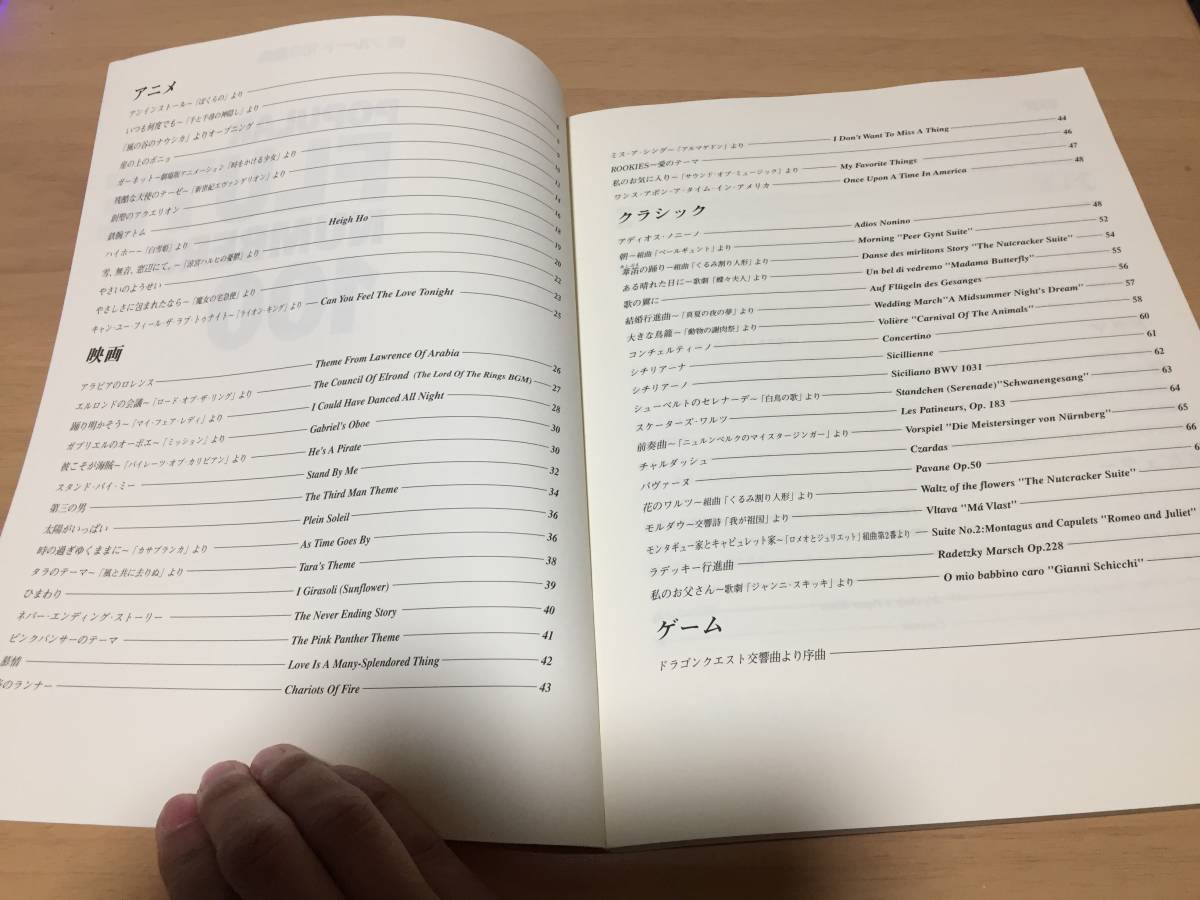 アニメ
アンインストール～「ぼくらの」より
いつも何度でも～「千と千尋の神隠し」より
「風の谷のナウシカ」よりオープニング
崖の上のポニョ
ガーネット～劇場版アニメーション「時をかける少女」より
残酷な天使のテーゼ～「新世紀エヴァンゲリオン」より
創聖のアクエリオン
鉄腕アトム
ハイホー～「白雪姫」より Heigh Ho
雪、無音、窓辺にて。～「涼宮ハルヒの憂鬱」より 20
やさいのようせい 22
やさしさに包まれたなら～「魔女の宅急便」より 23
キャン・ユー・フィール・ザ・ラブ・トゥナイト～「ライオン・キング」より Can You Feel The Love Tonight 25
映画
アラビアのロレンス Theme From Lawrence Of Arabia 26
エルロンドの会議～「ロード・オブ・ザ・リング」より The Council Of Elrond (The Lord Of The Rings BGM) 27
踊り明かそう～「マイ・フェア・レディ」より I Could Have Danced All Night 28
ガブリエルのオーボエ～「ミッション」より Gabriel's Oboe 30
彼こそが海賊～「パイレーツ・オブ・カリビアン」より He's A Pirate 30
スタンド・バイ・ミー Stand By Me 32
第三の男 The Third Man Theme 34
太陽がいっぱい Plein Soleil 36
時の過ぎゆくままに～「カサブランカ」より As Time Goes By 36
タラのテーマ～「風と共に去りぬ」より Tara's Theme 38
ひまわり I Girasoli (Sunflower) 39
ネバー・エンディング・ストーリー The Never Ending Story 40
ピンクパンサーのテーマ The Pink Panther Theme 41
慕情 Love Is A Many-Splendored Thing 42
のランナー Chariots Of Fire 43
ミス・ア・シング～「アルマゲドン」より I Don't Want To Miss A Thing 44
ROOKIES～愛のテーマ 46
私のお気に入り～「サウンド・オブ・ミュージック」より My Favorite Things 47
ワンス・アポン・ア・タイム・イン・アメリカ Once Upon A Time In America 48
クラシック
アディオス・ノニーノ Adios Nonino 48
朝～組曲「ペールギュント」より Morning "Peer Gynt Suite" 52
葦笛の踊り～組曲「くるみ割り人形」より Danse des mirlitons Story "The Nutcracker Suite" 54
ある晴れた日に～歌劇「蝶々夫人」より Un bel di vedremo "Madama Butterfly" 55
歌の翼に Auf Flügeln des Gesanges 56
結婚行進曲～「真夏の夜の夢」より Wedding March"A Midsummer Night's Dream" 57
大きな鳥籠～「動物の謝肉祭」より Volière "Carnival Of The Animals" 58
コンチェルティーノ Concertino 60
シチリアーナ Sicillienne 61
シチリアーノ Siciliano BWV 1031 62
シューベルトのセレナーデ～「白鳥の歌」より Standchen (Serenade)"Schwanengesang" 63
スケーターズ・ワルツ Les Patineurs, Op. 183 64
前奏曲～「ニュルンベルクのマイスタージンガー」より Vorspiel "Die Meistersinger von Nürnberg" 65
チャルダッシュ Czardas 66
パヴァーヌ Pavane Op.50
花のワルツ～組曲「くるみ割り人形」より Waltz of the flowers "The Nutcracker Suite"
モルダウ～交響詩「我が祖国」より Vltava "Má Vlast"
モンタギュー家とキャピュレット家～「ロメオとジュリエット」組曲第2番より Suite No.2:Montagus and Capulets "Romeo and Juliet"
ラデッキー行進曲 Radetzky Marsch Op.228
私のお父さん～歌劇「ジャンニ・スキッキ」より O mio babbino caro "Gianni Schicchi"
ゲーム
ドラゴンクエスト交響曲より序曲